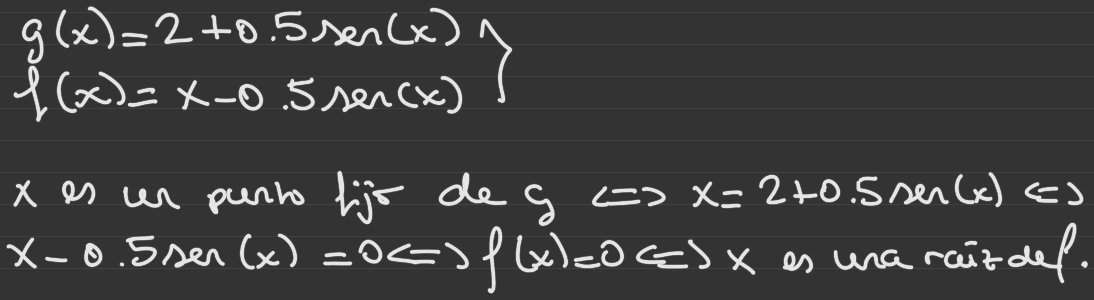 g(x)=2+0.5sen(x)
f(x)=x-0.5sen(x)
x es un punto fijo de g <=> x=2+0.5sen(x) <=>
x-0.5sen(x)=0<=>f(x)=0<=>x es una raíz de f.